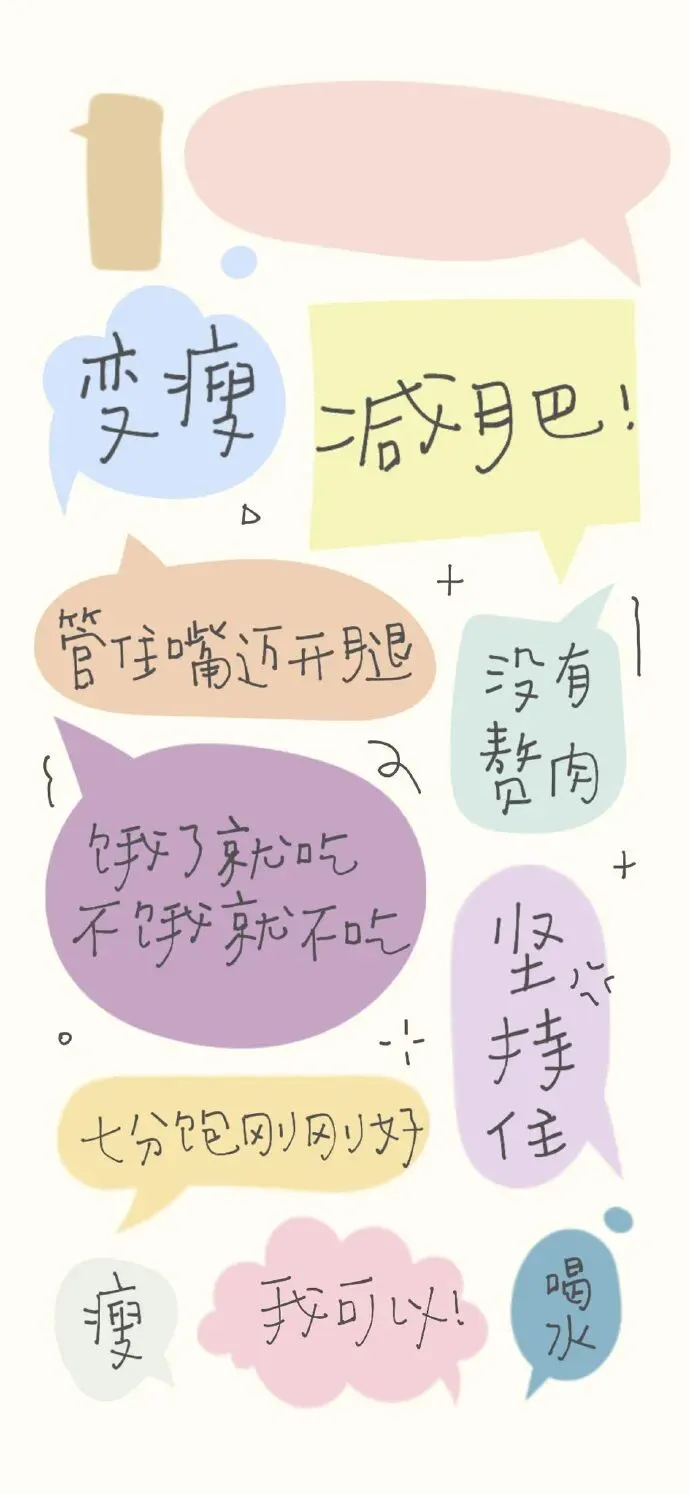 变瘦
减肥！
管住嘴迈开腿
没有
赘肉
饿了就吃
不饿就不吃
坚
持
住
七分饱刚刚好
瘦
我可以！
喝
水